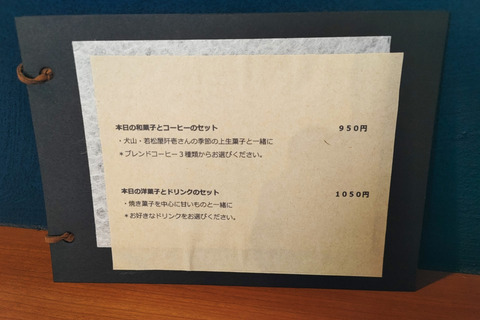 本日の和菓子とコーヒーのセット 950円
・犬山・若松屋阡壱さんの季節の上生菓子と一緒に
＊ブレンドコーヒー３種類からお選びください。
本日の洋菓子とドリンクのセット 1050円
・焼き菓子を中心に甘いものと一緒に
＊お好きなドリンクをお選びください。